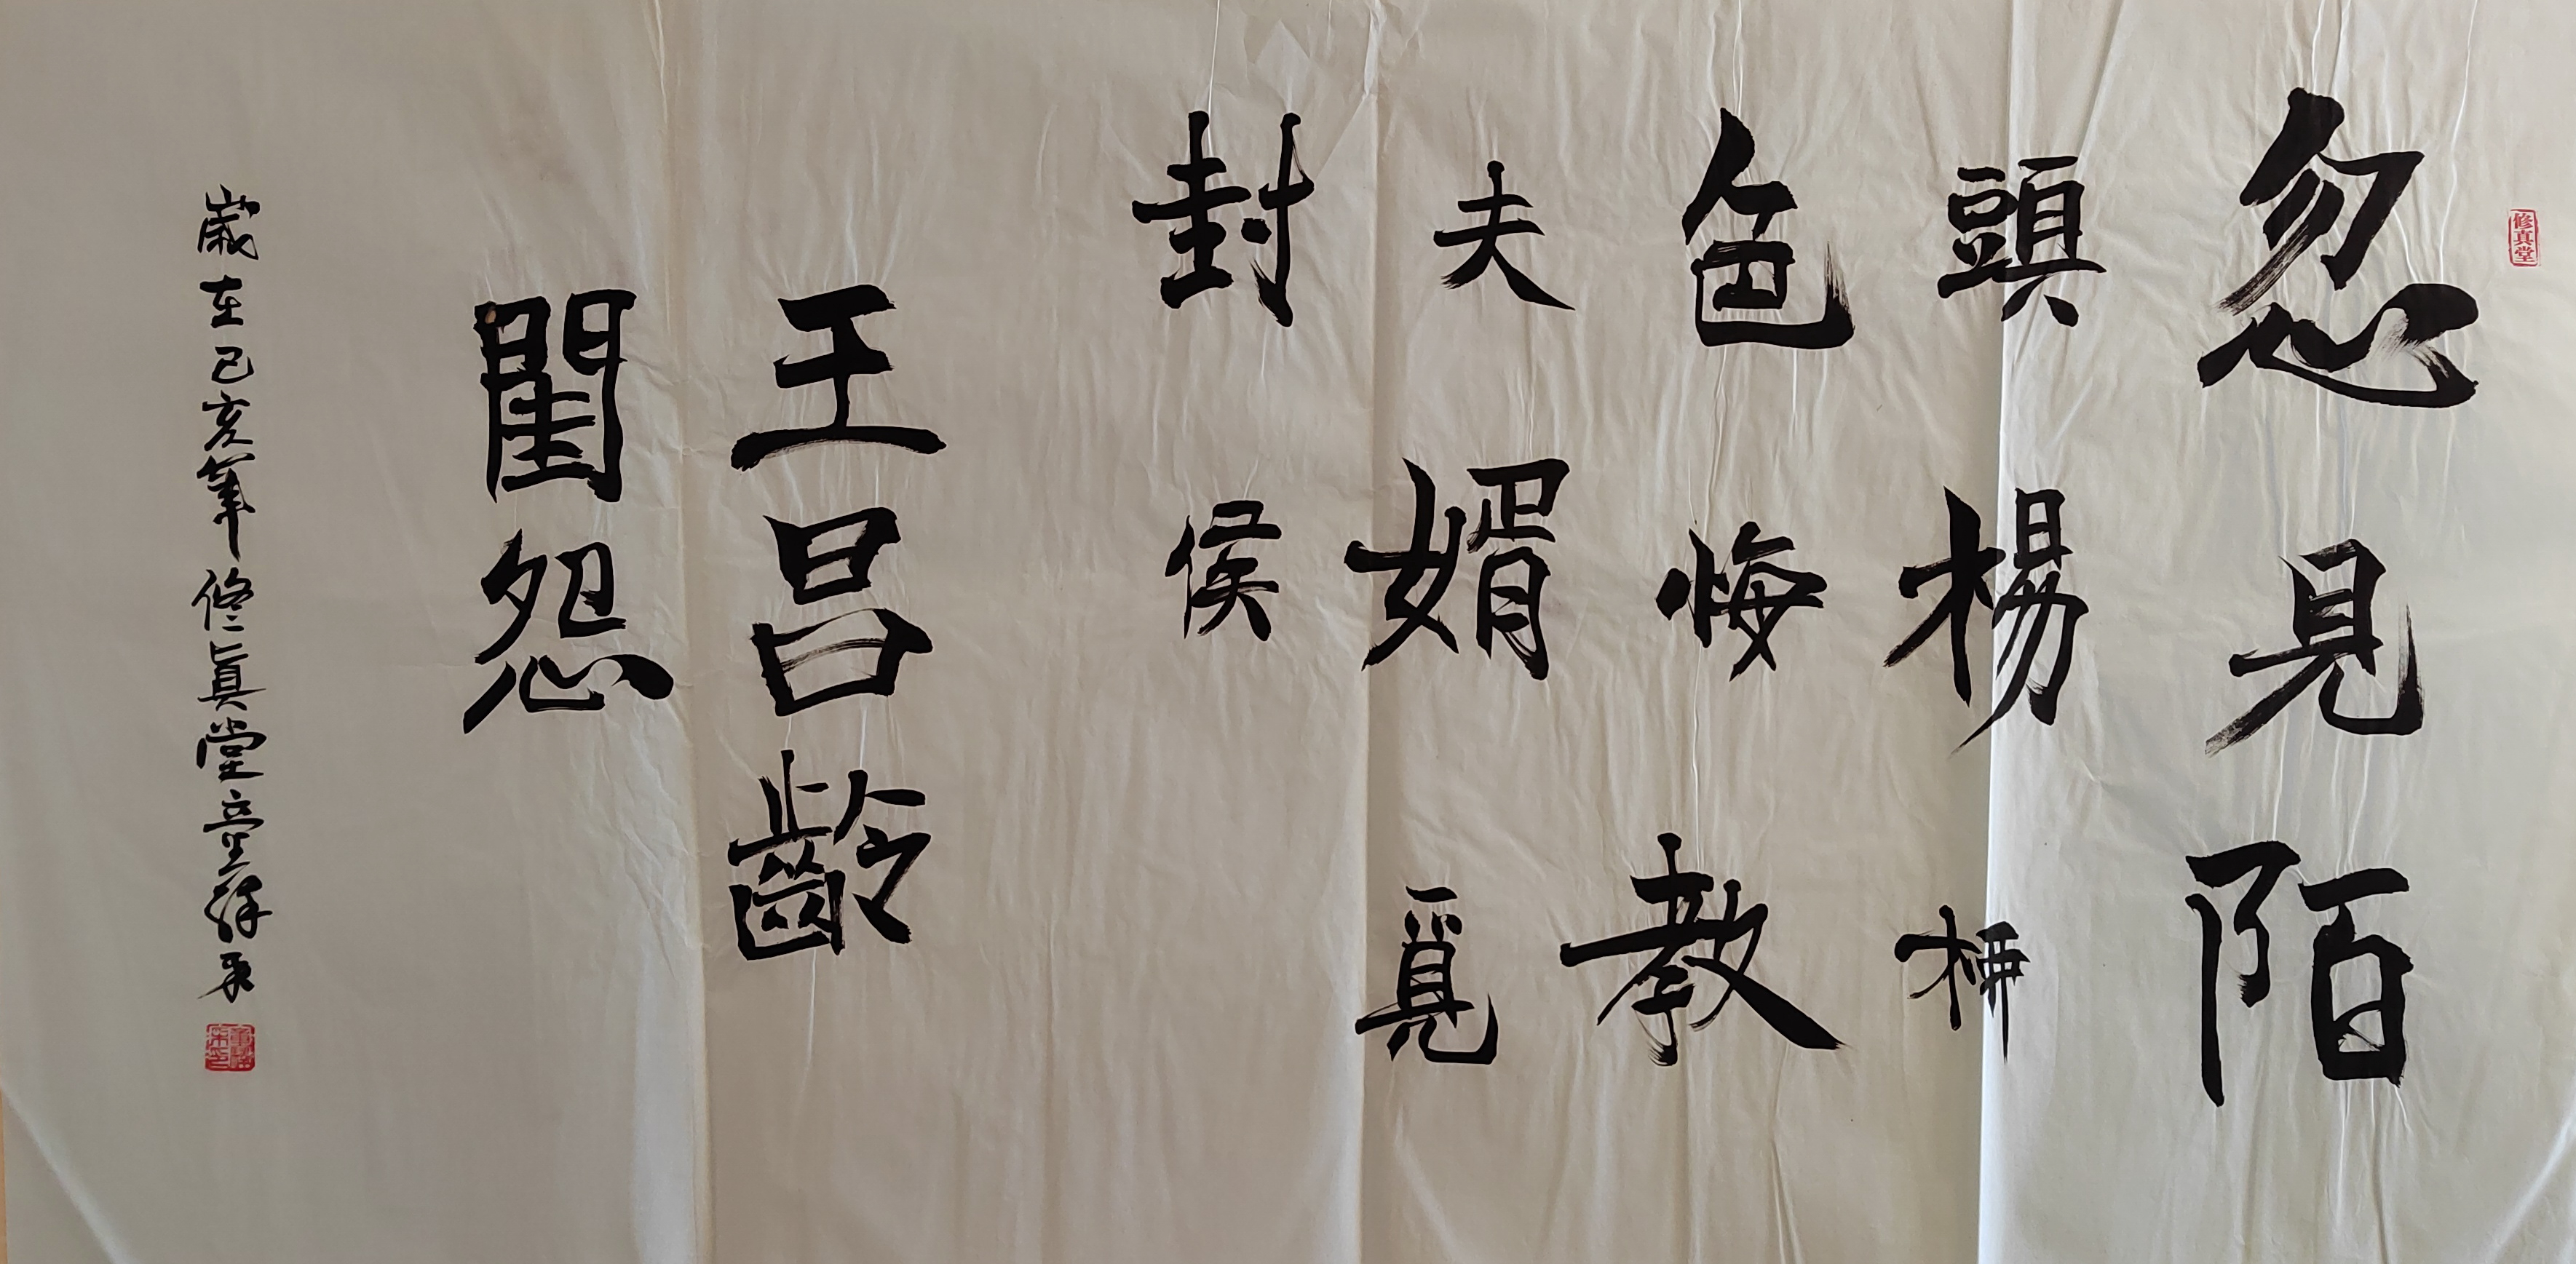 修真堂
忽見陌
頭楊柳
色悔教
夫婿覓
封侯
王昌齡
閨怨
歲在己亥年修真堂童祥